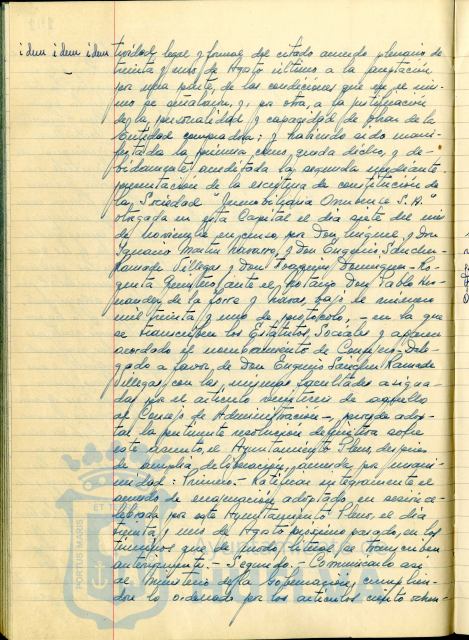 idem idem idem tividad legal y formal del citado acuerdo plenario de
treinta y uno de Agosto último a la aceptación
por una parte, de las condiciones que en el mis-
mo se señalaron, y, por otra, a la justificación
de la personalidad y capacidad de obrar de la
Entidad compradora; y habiendo sido mani-
festada la primera como queda dicho, y de-
bidamente acreditada la segunda mediante
presentación de la escritura de constitución de
la Sociedad "Inmobiliaria Onubense S.A."
otorgada en esta Capital el día siete del mes
de noviembre en curso, por Don Enrique y Don
Ignacio Martín Navarro, y Don Eugenio Sánchez-
Ramade Villegas y Don Joaquín Domínguez-Ro-
queta ante el Notario Don Pablo
de la Torre y Navas, bajo el número
mil treinta y uno de protocolo, - en la que
se transcriben los Estatutos Sociales y aparece
acordado el nombramiento de Consejero Dele-
gado a favor de Don Eugenio Sánchez Ramade
Villegas con las mismas facultades asigna-
das por el artículo veintitrés de aquellos
al Consejo de Administración -, procede adop-
tar la pertinente resolución definitiva sobre
este asunto, el Ayuntamiento Pleno, después
de amplia deliberación, acuerda por unani-
midad: Primero.- Ratificar íntegramente el
acuerdo de enajenación adoptado en sesión ce-
lebrada por este Ayuntamiento Pleno, el día
treinta y uno de Agosto próximo pasado, en los
términos que de modo literal se transcriben
anteriormente.- Segundo.- Comunicarlo así
al Ministerio de la Gobernación, cumplién-
dose lo ordenado por los artículos ciento ochen-
PORTUS MARIS
ET T